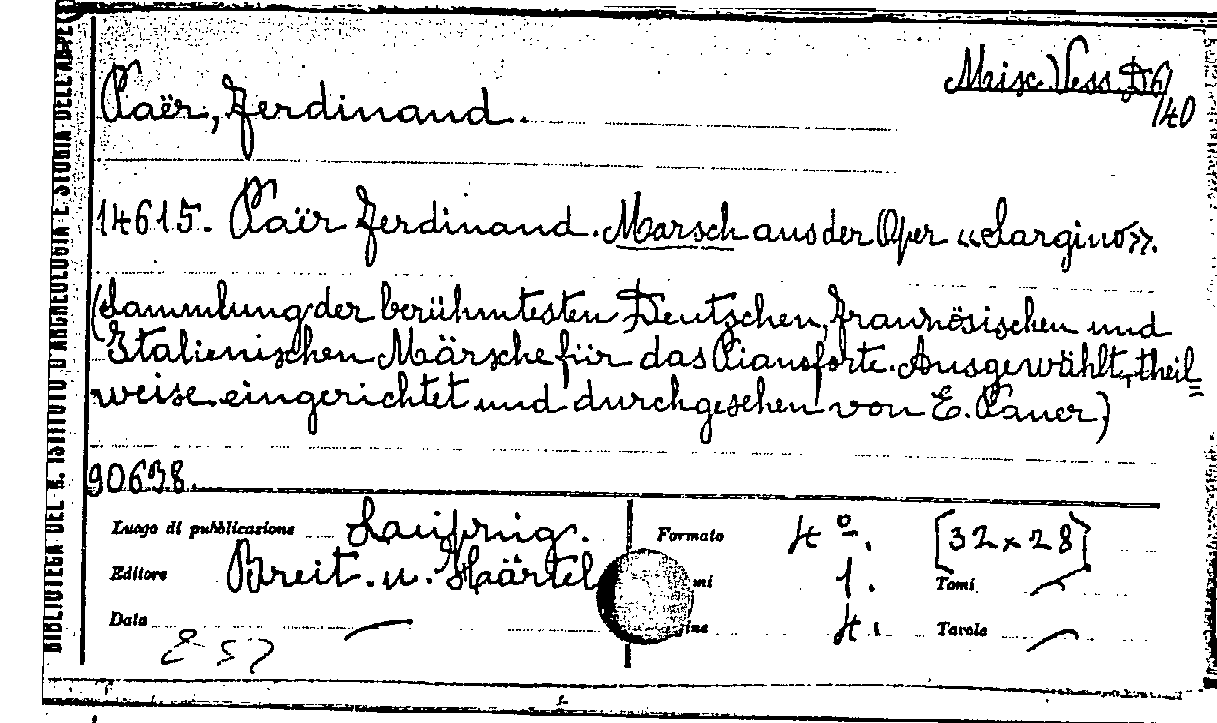 Misc. Vess. D6/40
Paër, Ferdinand.
14615. Paër Ferdinand. Marsch aus der Oper «Sargino».
(Sammlung der berühmtesten Deutschen, französischen und
Italienischen Märsche für das Pianoforte. Ausgewählt, theil=
weise eingerichtet und durchgesehen von E. Pauer)
90638.
Luogo di pubblicazione Leipzig. Formato 4º. [32 x 28]
Editore Breit. u. Härtel mi 1. Tomi —
Data — ine 4. Tavole —
BIBLIOTECA DEL R. ISTITUTO D'ARCHEOLOGIA E STORIA DELL'ARTE